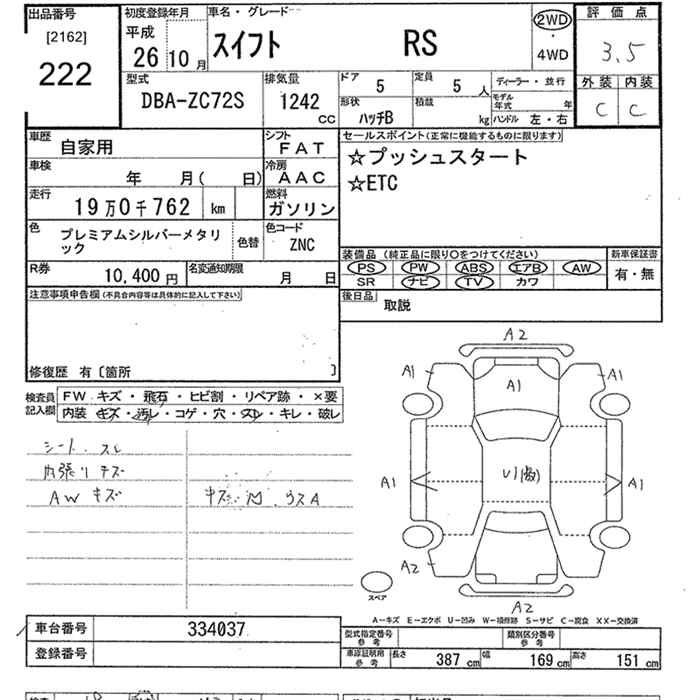 出品番号
[2162]
222
初度登録年月
平成
26 10 月
車名・グレード
スイフト RS
2WD
・
4WD
評価点
3.5
外装 内装
C C
型式
DBA-ZC72S
排気量
1242
CC
ドア
5
定員
5 人
形状
ハッチB
積載
kg
ディーラー・並行
モデル年式 年
ハンドル 左・右
車歴
自家用
シフト
FAT
車検
年 月( 日)
冷房
AAC
走行
19万0千762 km
燃料
ガソリン
色
プレミアムシルバーメタリ
ック
色替
色コード
ZNC
R券
10,400 円
名変通知期限
月 日
セールスポイント(正常に機能するものに限ります)
☆プッシュスタート
☆ETC
装備品 (純正品に限り○をつけてください)
PS PW ABS エアB AW
SR ナビ TV カワ
新車保証書
有・無
後日品
取説
注意事項申告欄(不具合内容等は具体的に記入して下さい)
修復歴 有〔箇所 〕
検査員
記入欄
FW キズ・飛石・ヒビ割・リペア跡・×要
内装 キズ・汚レ・コゲ・穴・スレ・キレ・破レ
シート、スレ
内張リ キズ
AW キズ
A2
A1 A1
A1
A1 A1
A2
A2
スペア
A-キズ E-エクボ U-凹み W-補修跡 S-サビ C-腐食 XX-交換済
車台番号
334037
登録番号
型式指定番号
参考
類別区分番号
参考
車庫証明用
参考
長さ 387 cm 幅 169 cm 高さ 151 cm